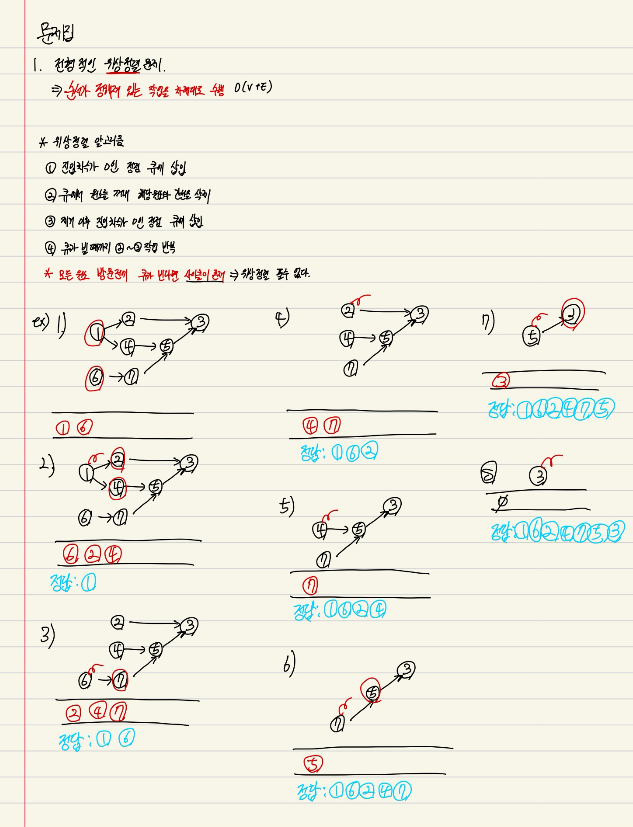 문제집
1. 전형적인 위상정렬 문제.
⇒ 순서가 정해져 있는 작업을 차례대로 수행 O(V+E)
* 위상정렬 알고리즘
① 진입차수가 0인 정점 큐에 삽입
② 큐에서 원소를 꺼내 해당원소와 간선을 삭제
③ 제거 이후 진입차수가 0인 정점 큐에 삽입
④ 큐가 빌때까지 ②~③ 작업 반복
* 모든 원소 방문전에 큐가 빈다면 사이클이 존재 ⇒ 위상정렬 풀수 없다.
ex) 1)
① ② ③ ④ ⑤ ⑥ ⑦
① ⑥
2)
① ② ③ ④ ⑤ ⑥ ⑦
⑥ ② ④
정답: ①
3)
② ③ ④ ⑤ ⑥ ⑦
② ④ ⑦
정답: ① ⑥
4)
② ③ ④ ⑤ ⑦
④ ⑦
정답: ① ⑥ ②
5)
③ ④ ⑤ ⑦
⑦
정답: ① ⑥ ② ④
6)
③ ⑤ ⑦
⑤
정답: ① ⑥ ② ④ ⑦
7)
⑤
③
정답: ① ⑥ ② ④ ⑦ ⑤
③
∅
정답: ① ⑥ ② ④ ⑦ ⑤ ③